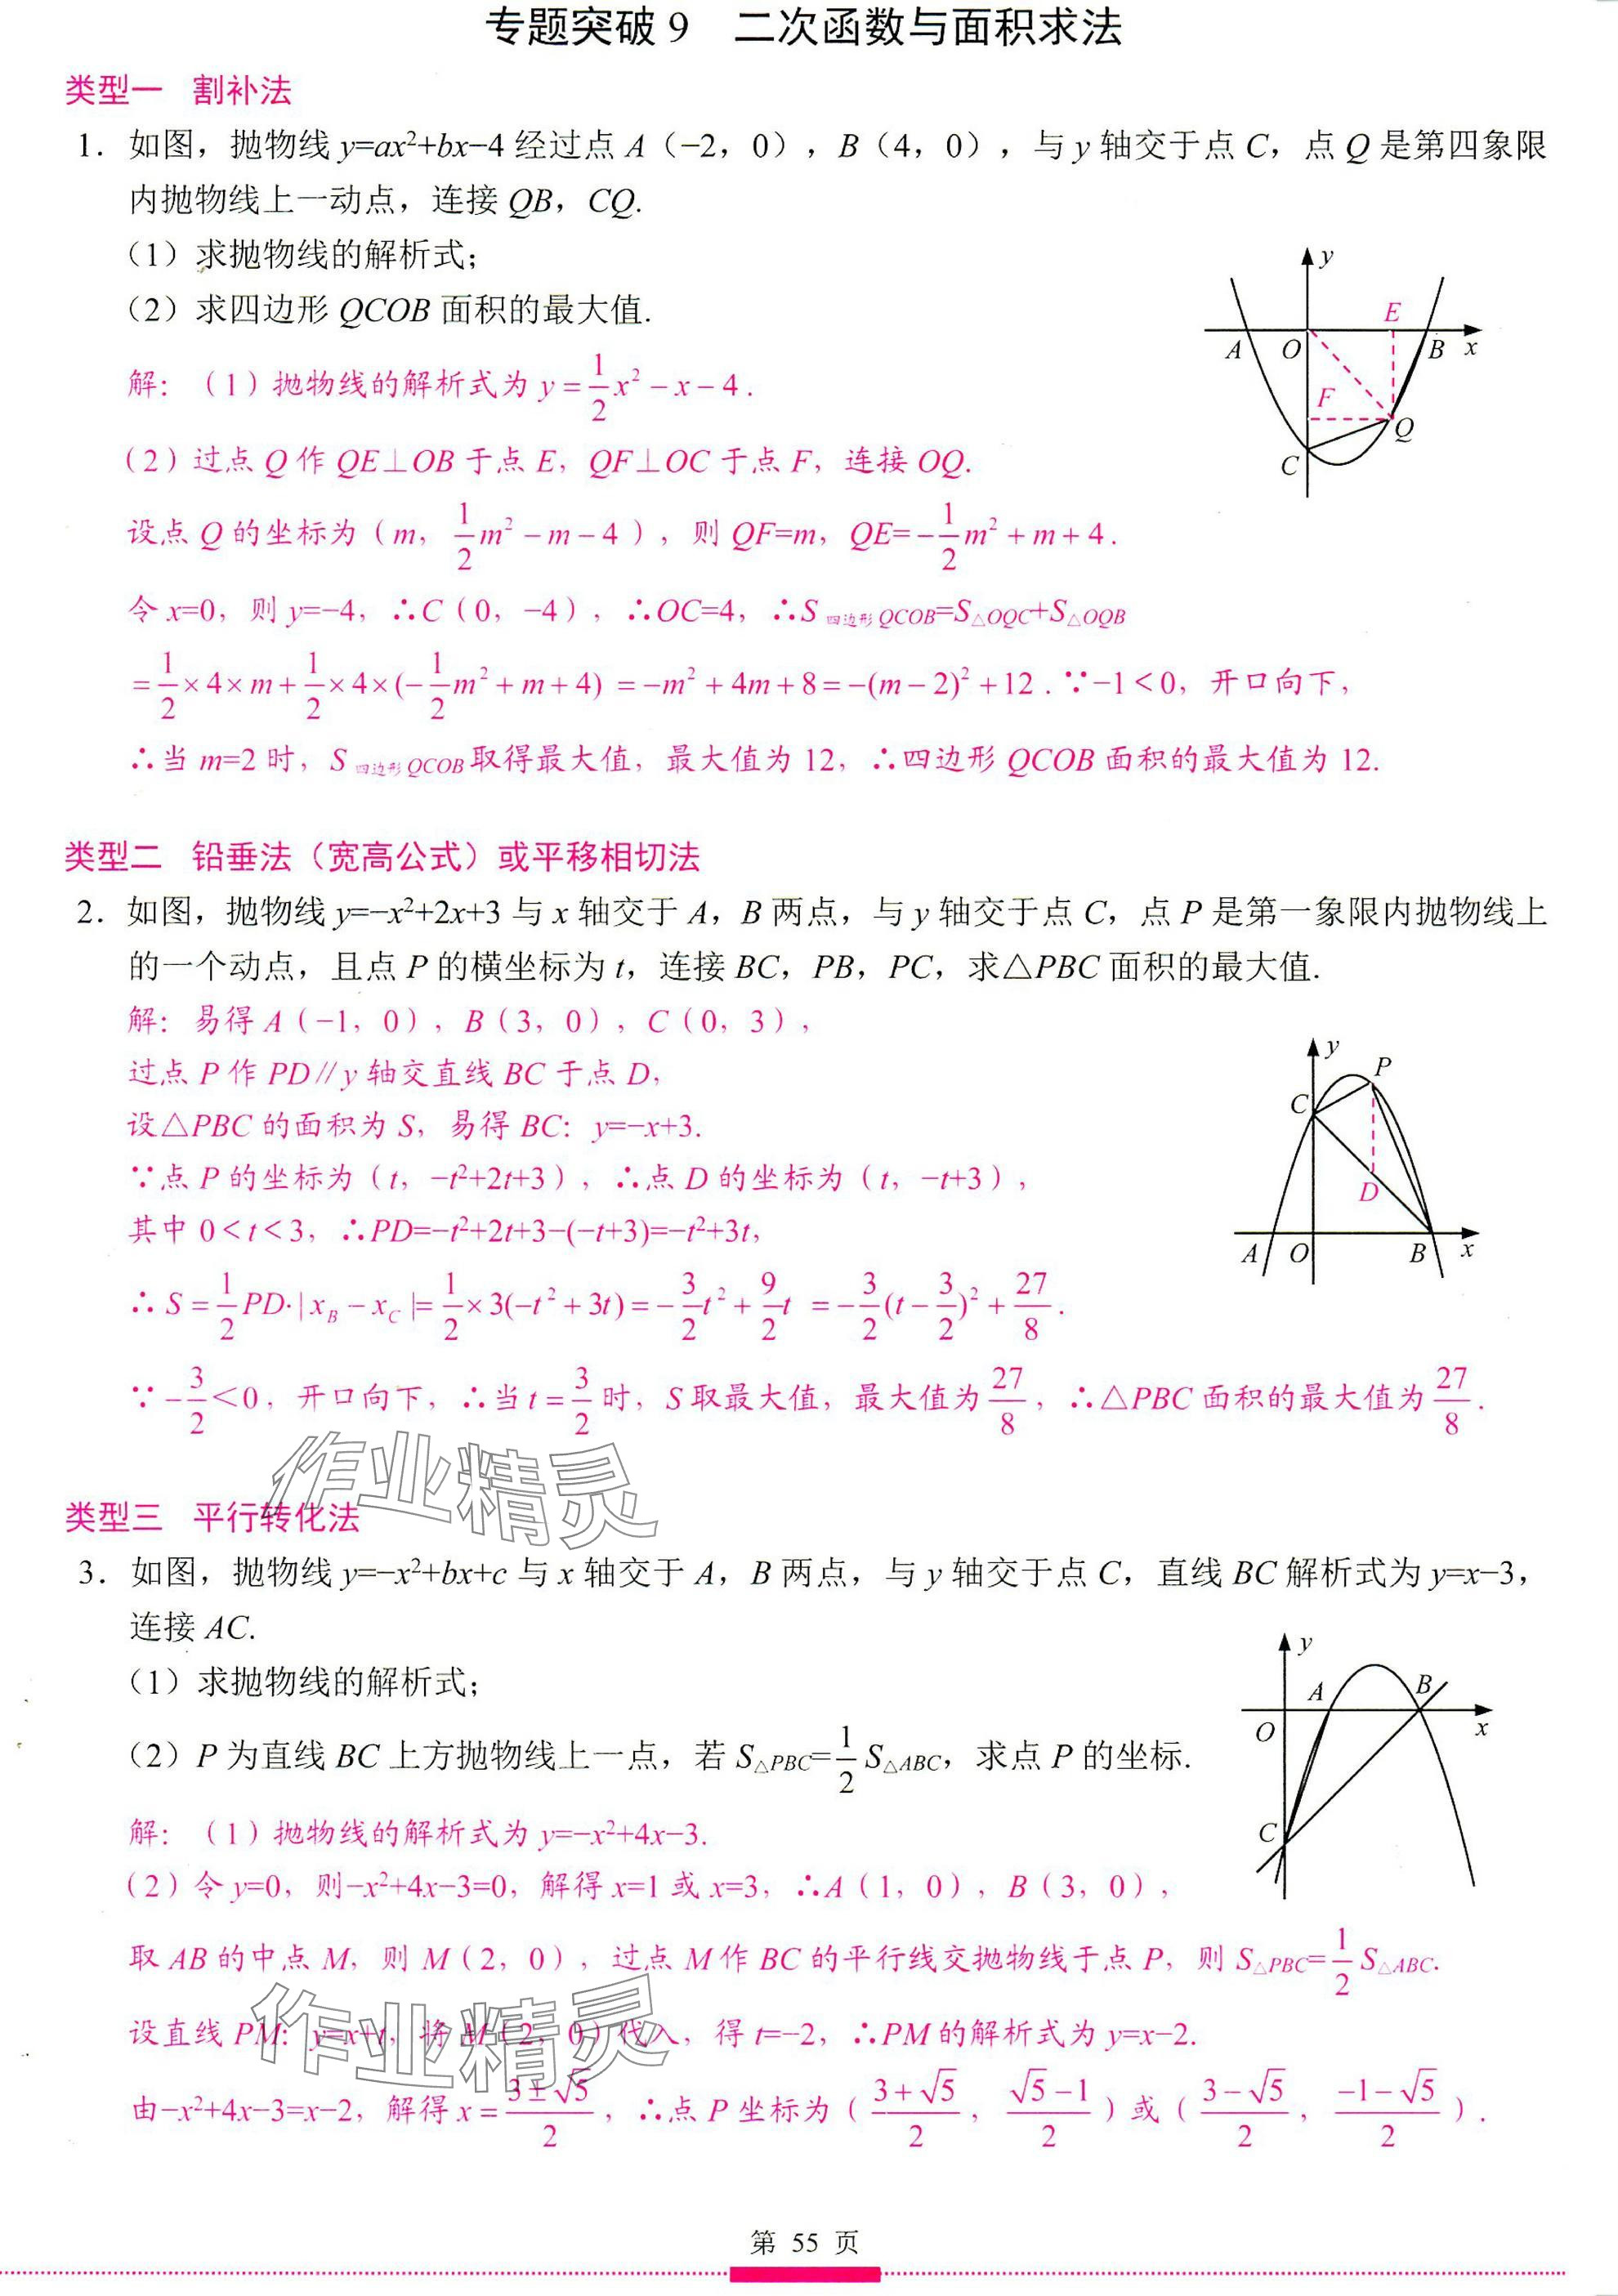 专题突破 9　二次函数与面积求法
类型一　割补法
1．如图，抛物线 y=ax²+bx−4 经过点 A（−2，0），B（4，0），与 y 轴交于点 C，点 Q 是第四象限
内抛物线上一动点，连接 QB，CQ.
（1）求抛物线的解析式；
（2）求四边形 QCOB 面积的最大值.
y
E
A O B x
F
Q
C
解：（1）抛物线的解析式为 y = 1/2 x² − x − 4 .
（2）过点 Q 作 QE⊥OB 于点 E，QF⊥OC 于点 F，连接 OQ.
设点 Q 的坐标为（m，1/2 m² − m − 4），则 QF=m，QE= −1/2 m² + m + 4 .
令 x=0，则 y=−4，∴C（0，−4），∴OC=4，∴S四边形QCOB=S△OQC+S△OQB
= 1/2 × 4 × m + 1/2 × 4 × (−1/2 m² + m + 4) = −m² + 4m + 8 = −(m − 2)² + 12 . ∵−1 < 0，开口向下，
∴当 m=2 时，S四边形QCOB取得最大值，最大值为 12，∴四边形 QCOB 面积的最大值为 12.
类型二　铅垂法（宽高公式）或平移相切法
2．如图，抛物线 y=−x²+2x+3 与 x 轴交于 A，B 两点，与 y 轴交于点 C，点 P 是第一象限内抛物线上
的一个动点，且点 P 的横坐标为 t，连接 BC，PB，PC，求△PBC 面积的最大值.
解：易得 A（−1，0），B（3，0），C（0，3），
过点 P 作 PD∥y 轴交直线 BC 于点 D，
设△PBC 的面积为 S，易得 BC：y=−x+3.
∵点 P 的坐标为（t，−t²+2t+3），∴点 D 的坐标为（t，−t+3），
其中 0 < t < 3，∴PD=−t²+2t+3−(−t+3)=−t²+3t，
y
P
C
D
A O B x
∴ S = 1/2 PD·| x_B − x_C |= 1/2 × 3(−t² + 3t) = −3/2 t² + 9/2 t = −3/2 (t − 3/2)² + 27/8 .
∵ −3/2 < 0，开口向下，∴当 t = 3/2 时，S 取最大值，最大值为 27/8，∴△PBC 面积的最大值为 27/8 .
作业精灵
类型三　平行转化法
3．如图，抛物线 y=−x²+bx+c 与 x 轴交于 A，B 两点，与 y 轴交于点 C，直线 BC 解析式为 y=x−3，
连接 AC.
（1）求抛物线的解析式；
（2）P 为直线 BC 上方抛物线上一点，若 S△PBC= 1/2 S△ABC，求点 P 的坐标.
y
A B
O x
C
解：（1）抛物线的解析式为 y=−x²+4x−3.
（2）令 y=0，则−x²+4x−3=0，解得 x=1 或 x=3，∴A（1，0），B（3，0），
取 AB 的中点 M，则 M（2，0），过点 M 作 BC 的平行线交抛物线于点 P，则 S△PBC= 1/2 S△ABC.
设直线 PM：y=x+t，将 M（2，0）代入，得 t=−2，∴PM 的解析式为 y=x−2.
作业精灵
由−x²+4x−3=x−2，解得 x = (3±√5)/2，∴点 P 坐标为（(3+√5)/2，(√5−1)/2）或（(3−√5)/2，(−1−√5)/2）.
第 55 页